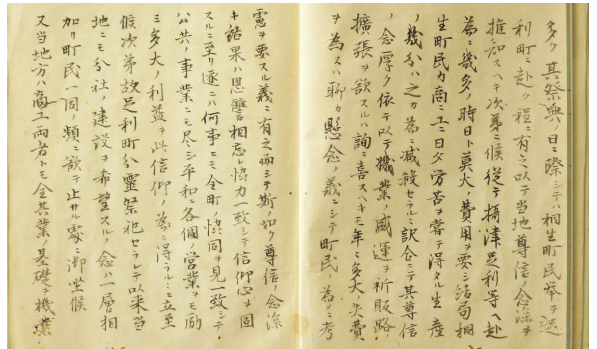 多ク其祭典ノ日ニ際シテハ桐生町民挙テ遠
利町ニ赴ク程ニ有之以テ当地尊信ノ念深ヲ
推知スヘキ次第ニ候従テ摂津足利等ヘ赴
為ニ幾多ノ時日ト莫大ノ費用ヲ要シ結局桐
生町民カ商ニ工ニ日夕労苦ヲ嘗テ得タル生産
ノ幾分ハ之カ為ニ減殺セラルヽ訳合ニテ其尊信
ノ念厚ク依テ以テ機業ノ盛運ヲ祈販路ノ
擴張ヲ欲スルハ詢ニ喜スヘキモ年々多大ノ失費
ヲ為スハ聊カ懸念ノ義ニシテ町民ノ為ニ考
慮ヲ要スル義ニ有之而シテ斯ノ如ク尊信ノ念深
キ結果ハ恩讐相忘レ協力一致シテ信仰心ヲ固
スルニ至リ遂ニハ何事ニモ全町ノ協同ヲ見一致シテ
公共ノ事業ニモ尽シ平和ニ各個ノ営業ヲモ励
ミ多大ノ利益ヲ此信仰ノ為ニ得ラルヽニ立至
候次第故足利町分霊祭祀セラレテ以来当
地ニモ分社ノ建設ヲ希望スルノ念ハ一層相
加リ町民一同ノ頻ニ歓テ止サル處ニ御坐候
又当地方ハ商工両者トモ全其業ノ基礎ヲ機業